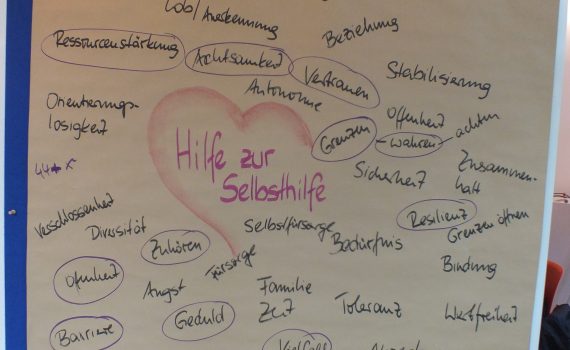 Lob/ Anerkennung
Beziehung
Ressourcenstärkung
Achtsamkeit
Vertrauen
Stabilisierung
Autonomie
Orientierungs-
losigkeit
Offenheit
Grenzen - wahren - achten
Hilfe zur
Selbsthilfe
Sicherheit
Zusammen-
halt
Verschlossenheit
Diversität
Selbstfürsorge
Resilienz
Grenzen öffnen
Zuhören
Bedürfnis
Fürsorge
Bindung
Offenheit
Angst
Familie
Zeit
Toleranz
Wertfreiheit
Barriere
Geduld
Vielfalt